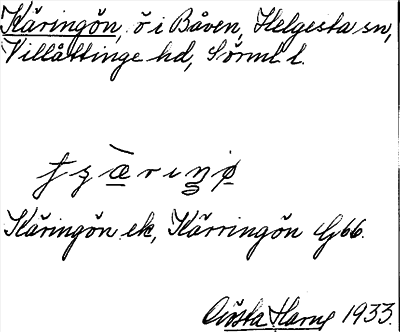 Käringön, ö i Båven, Helgesta sn,
Villåttinge hd, Sörml. l.
Käringön ek, Kärringön G66.
Gösta Harug 1933.